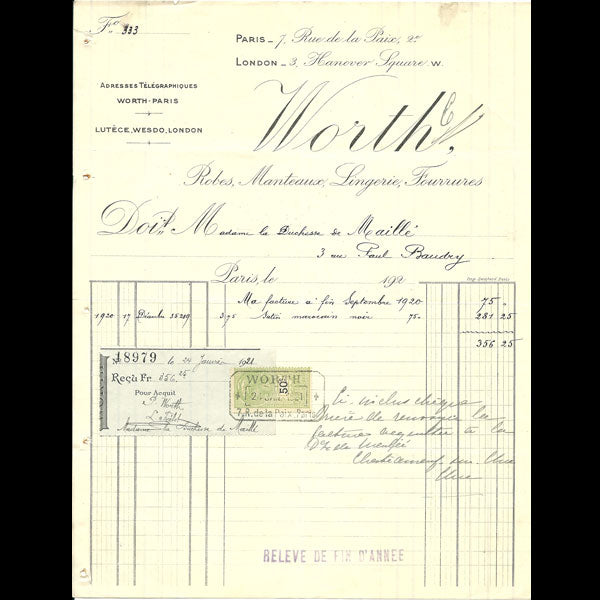 Fº 333
PARIS - 7, Rue de la Paix, 2e
LONDON - 3, Hanover Square. W.
ADRESSES TÉLÉGRAPHIQUES
WORTH-PARIS
LUTÈCE, WESDO, LONDON
Worth,
Robes, Manteaux, Lingerie, Fourrures
Doit Madame la Duchesse de Maillé
3 rue Paul Baudry
Paris, le 192
Ma facture a fin Septembre 1920 75 "
1920 17 3.75 Satin marocain noir 75- 281 25
356 25
Nº 18979 le 24 Janvier 1921
Reçu Fr. 356.25
Pour Acquit
Worth
Madame la Duchesse de Maillé
WORTH
50
7, R. de la Paix, Paris
Ci-inclus chèque
Prière de renvoyer la
facture acquittée à la
Dsse de Maillé
Chateauneuf sur Cher
Cher
RELEVÉ DE FIN D'ANNÉE